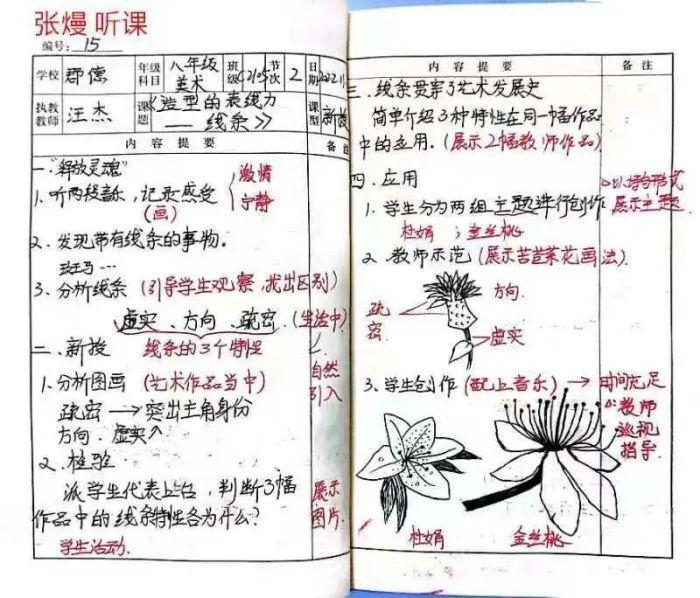 张熳 听课
编号: 15
学校 郡德 年级科目 八年级美术 班级 C2105 节次 2 日期 2022.11
执教教师 汪杰 课题 《造型的表线力——线条》 课型 新授
内容提要 备注
一."释放灵魂"
1.听两段音乐,记录感受(画) 激情 宁静
2.发现带有线条的事物。
斑马…
3.分析线条(引导学生观察,找出区别)
虚实、方向、疏密.(生活中)
二、新授 线条的3个特性
自然引入
1.分析图画(艺术作品当中)
疏密→突出主角身份
方向.虚实
2.检验
派学生代表上台,判断3幅
作品中的线条特性各为什么?
展示图片.
学生活动.
内容提要 备注
三.线条贯穿了艺术发展史
简单介绍3种特性在同一幅作品
中的应用.(展示2幅教师作品)
四.应用
1.学生分为两组主题进行创作
杜娟;金丝桃
以结构形式
展示主题.
2.教师示范(展示苦苣菜花画法).
方向.
疏密
虚实
3.学生创作(配上音乐)→时间充足
教师
巡视
指导.
杜娟
金丝桃